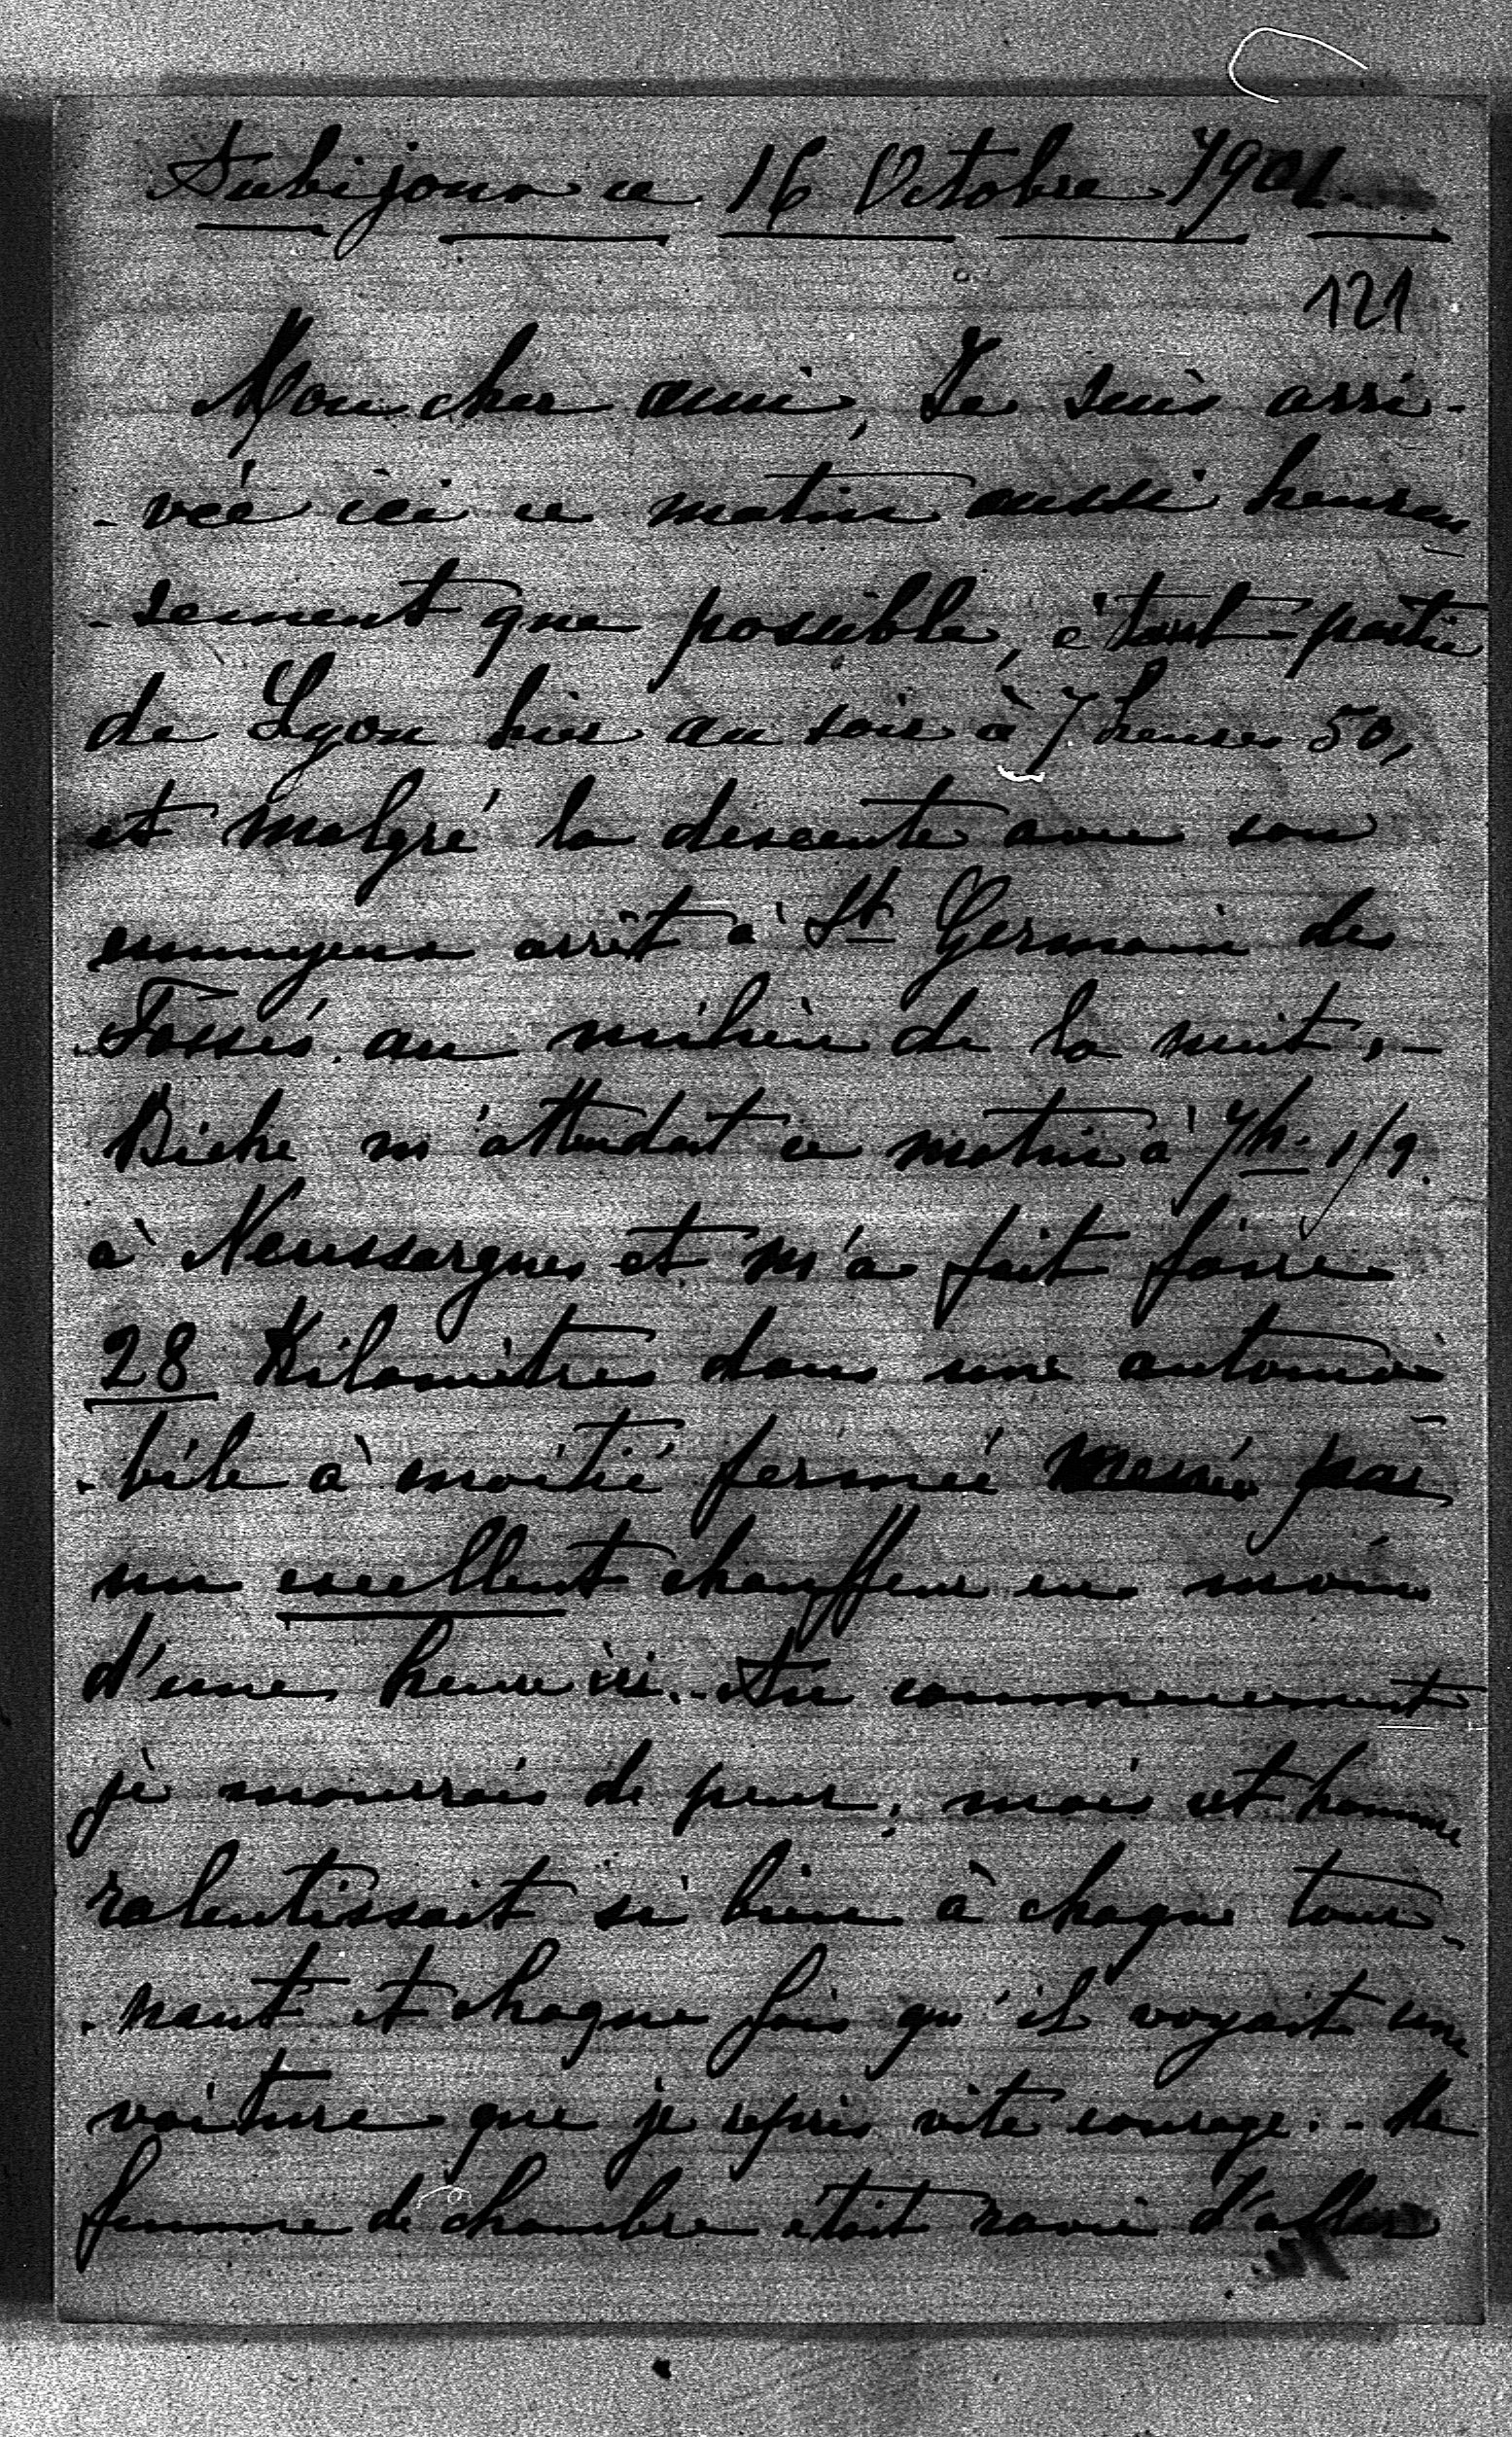 Aubijoux ce 16 Octobre 1901.
121
Mon cher ami, Je suis arri-
-vée ici ce matin aussi heureu
-sement que possible, étant partie
de Lyon hier au soir à 7 heures 50,
et malgré la descente avec son
ennuyeux arrêt à St Germain des
Fossés au milieu de la nuit. -
Biche m'attendait ce matin à 7h. 1/2
à Neussargues et m'a fait faire
28 Kilomètres dans une automo
-bile à moitié fermée menée par
un excellent chauffeur en moins
d'une heure ici. - Au commencement
je mourrais de peur, mais cet homme
ralentissait si bien à chaque tour-
-nant et chaque fois qu'il voyait une
voiture que je repris vite courage. - Ma
femme de chambre était ravie d'aller